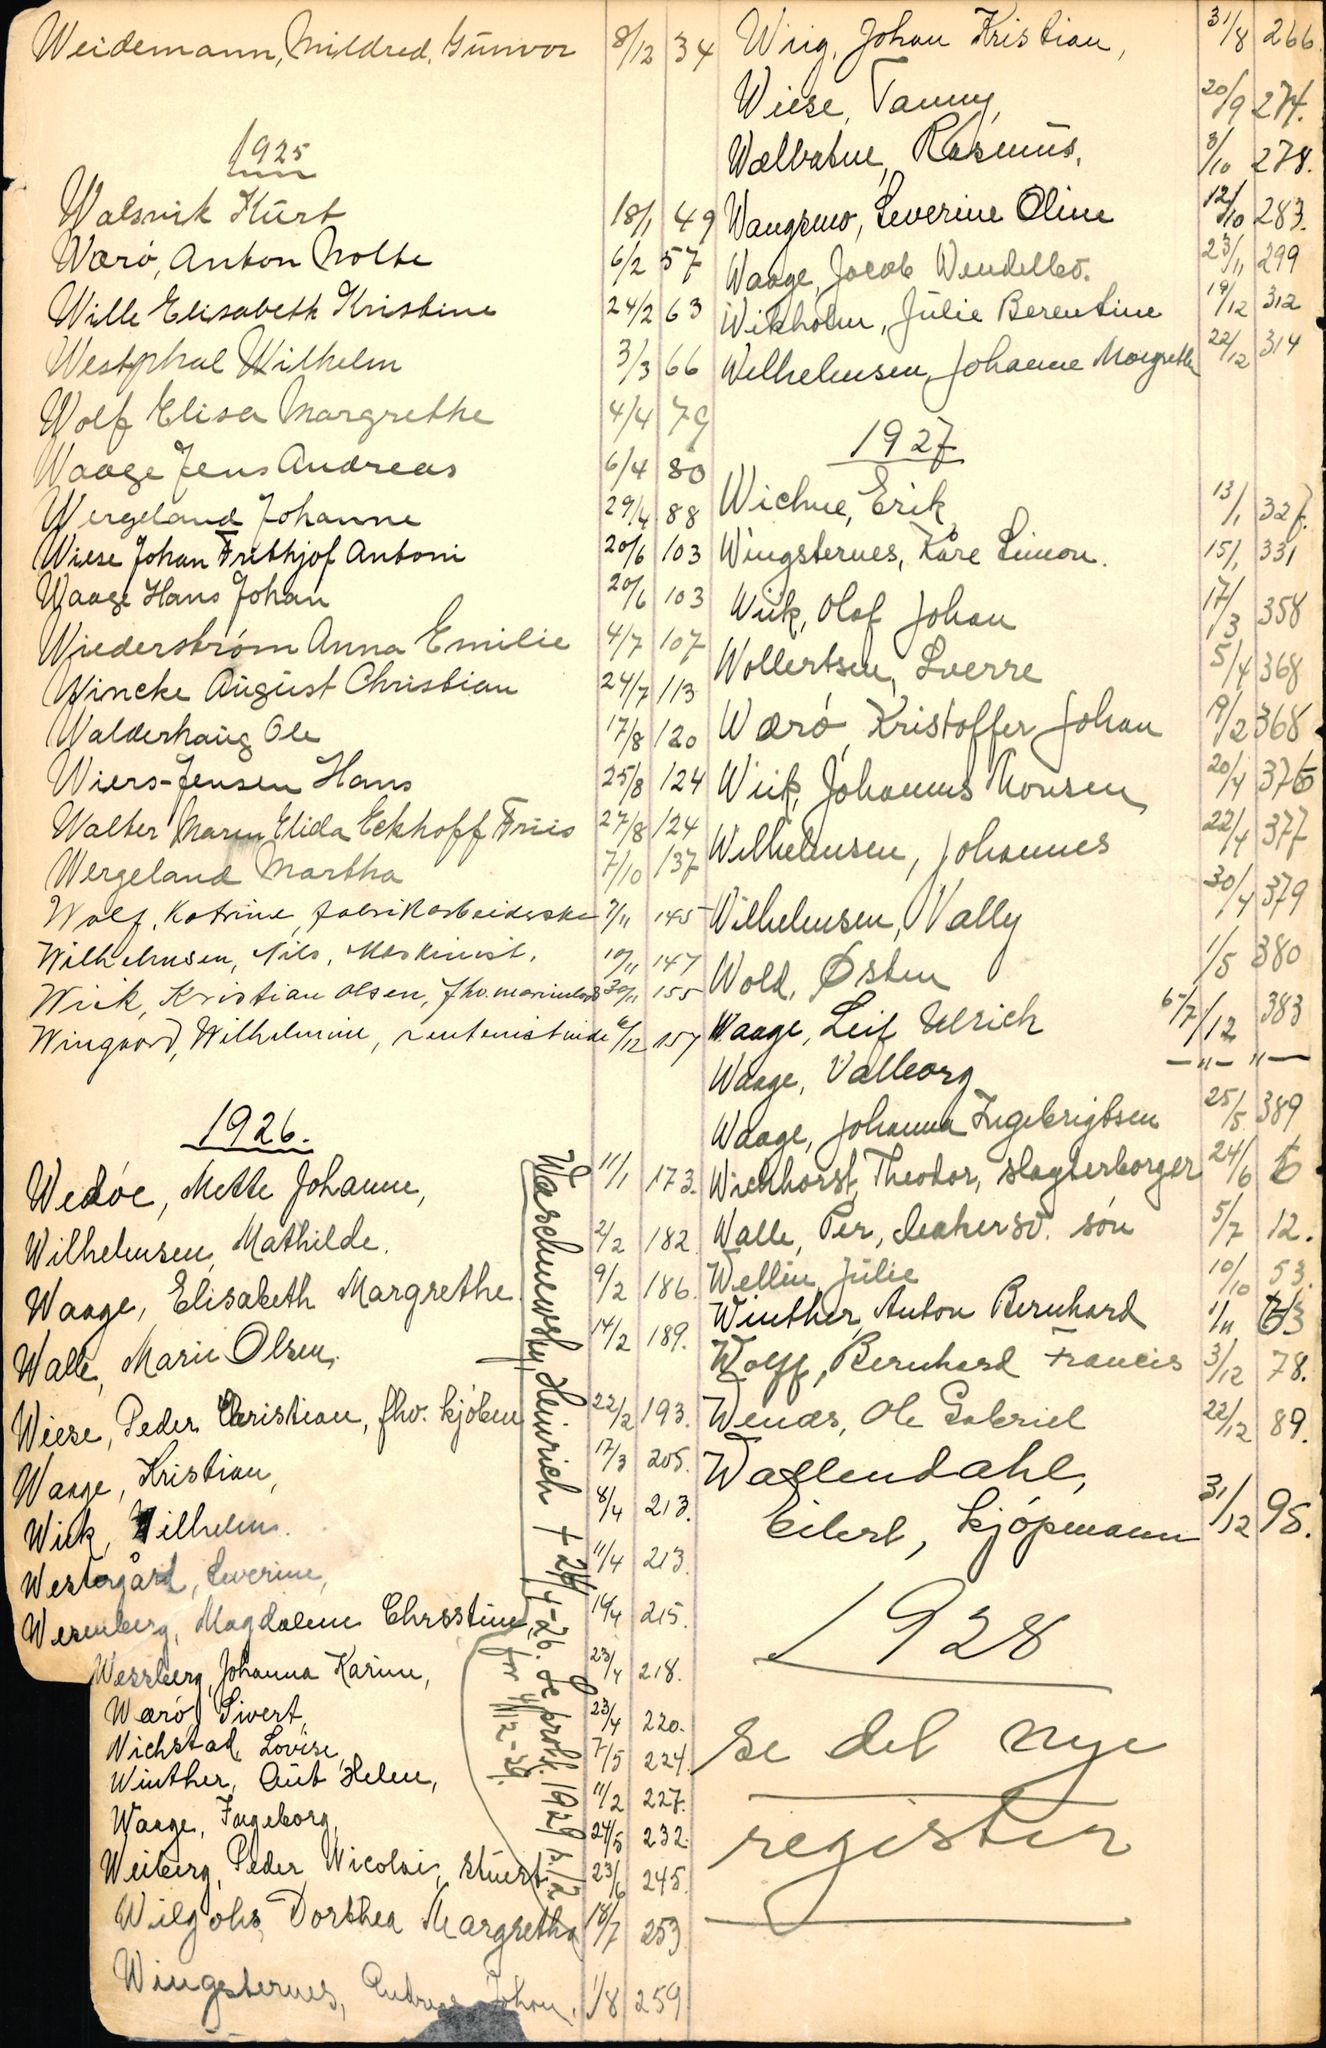 Weidemann, Mildred, Gunvor 8/12 34
1925
Walsvik Kurt 18/1 49
Værö, Anton Nolte 6/2 57
Wille Elisabeth Kristine 24/2 63
Westphal Wilhelm 3/3 66
Wolf Elisa Margrethe 4/4 79
Waage Jens Andreas 6/4 80
Wergeland Johanne 29/4 88
Wiese Johan Frithjof Antoni 20/6 103
Waage Hans Johan 20/6 103
Wiederstrøm Anna Emilie 4/7 107
Wincke August Christian 24/7 113
Walderhaug Ole 17/8 120
Wiers-Jensen Hans 25/8 124
Walter Maren Elida Eckhoff Friis 27/8 124
Wergeland Martha 7/10 137
Wolf, Katrine, fabrikarbeiderske 7/11 145
Wilhelmsen, Nils, Maskinist. 10/11 147
Wiik, Kristian Olsen, fhv. 30/11 155
Wingaard, Wilhelmine, rentenistinde 6/12 157
1926.
Wedöe, Mette Johanne, 11/1 173.
Wilhelmsen, Mathilde. 2/2 182
Waage, Elisabeth Margrethe 9/2 186.
Walle, Marie Olsen, 14/2 189.
Wiese, Peder Christian, fhv. kjöbm 22/2 193.
Waage, Kristian, 17/3 205.
Wiik, Wilhelm. 8/4 213.
Westergård, Severine, 11/4 213.
Werenberg, Magdalene Chrsstine, 14/4 215.
Wessberg, Johanna Karine, 23/4 218.
Værö, Sivert, 23/4 220.
Wichstad, Lovise, 7/5 224.
Winther, Aut Helene, 11/2 227.
Waage, Ingeborg, 24/5 232.
Weiberg, Peder Nicolai, stuert 23/6 245.
Wilgohs, Dorthea Margretha 18/7 253
Wingsternes, Andreas Johan, 1/8 259
Waschnewsky, Heinrich + 24/4-26. Se prot. 1929 s. 12
for 4/12-29.
Wiig, Johan Kristian, 31/8 266.
Wiese, Fanny, 20/9 274.
Wælvatne, Rasmus, 3/10 278.
Wangsmo, Severine Oline 12/10 283.
Waage, Jacob Wendelbo. 23/11 299
Wikholm, Julie Berentine 19/12 312
Wilhelmsen, Johanne Margrethe 22/12 314
1927
Wichne, Erik 13/1 327.
Wingsternes, Kåre Simon. 15/1 331
Wiik, Olaf Johan 17/3 358
Wollertsen, Sverre 5/4 368
Værö, Kristoffer Johan 9/2 368
Wiik, Johannes Monsen 20/4 376
Wilhelmsen, Johannes 22/4 377
Wilhelmsen, Vally 30/4 379
Wold, Østen 1/5 380
Waage, Leif Ulrich 6-7/12 383
Waage, Valborg — " — " —
Waage, Johanna Ingebrigtsen 25/5 389
Wichhorst, Theodor, slagterborger 24/6 6
Walle, Per, sön 5/7 12.
Wellin, Julie 10/10 53.
Winther, Anton Bernhard 1/11 63
Wolff, Bernhard Francis 3/12 78.
Wenæs, Ole Gabriel 22/12 89.
Wallendahl,
Eilert, kjöpmann 31/12 95.
1928
se det nye
register